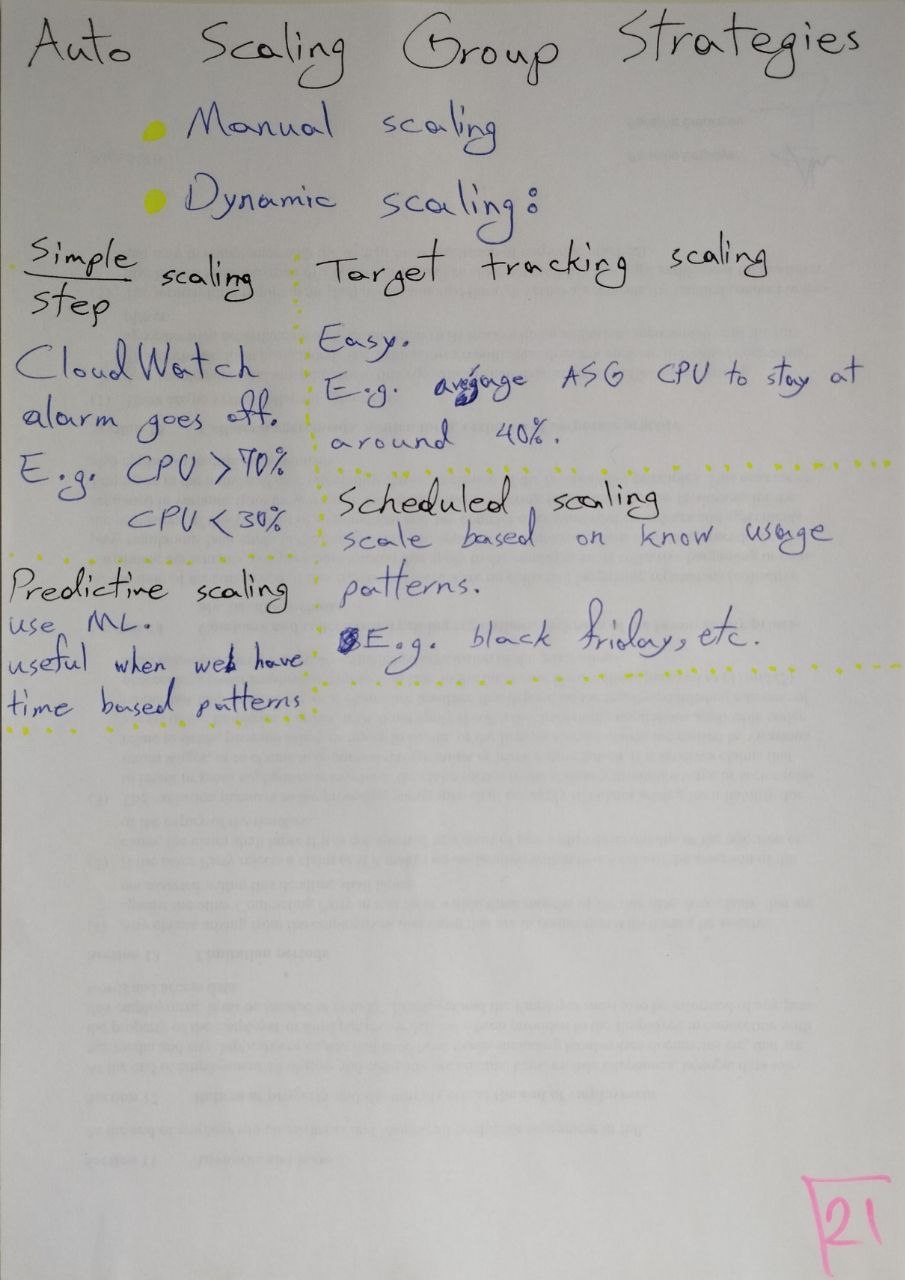 Auto Scaling Group Strategies
Manual scaling
Dynamic scaling:
Simple
Step scaling
CloudWatch
alarm goes off.
E.g. CPU > 70%
CPU < 30%
Target tracking scaling
Easy.
E.g. average ASG CPU to stay at
around 40%.
Scheduled scaling
scale based on know usage
patterns.
E.g. black friday, etc.
Predictive scaling
use ML.
useful when we have
time based patterns
21